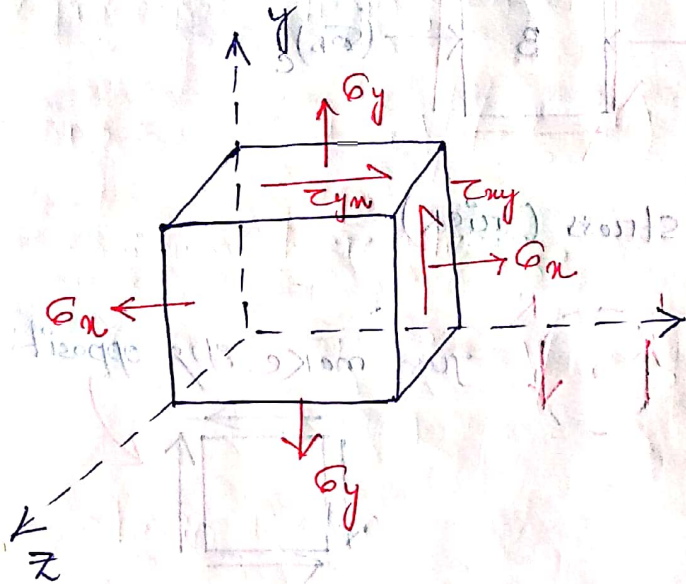 y
σy
τyx
τxy
σx
σx
σy
z